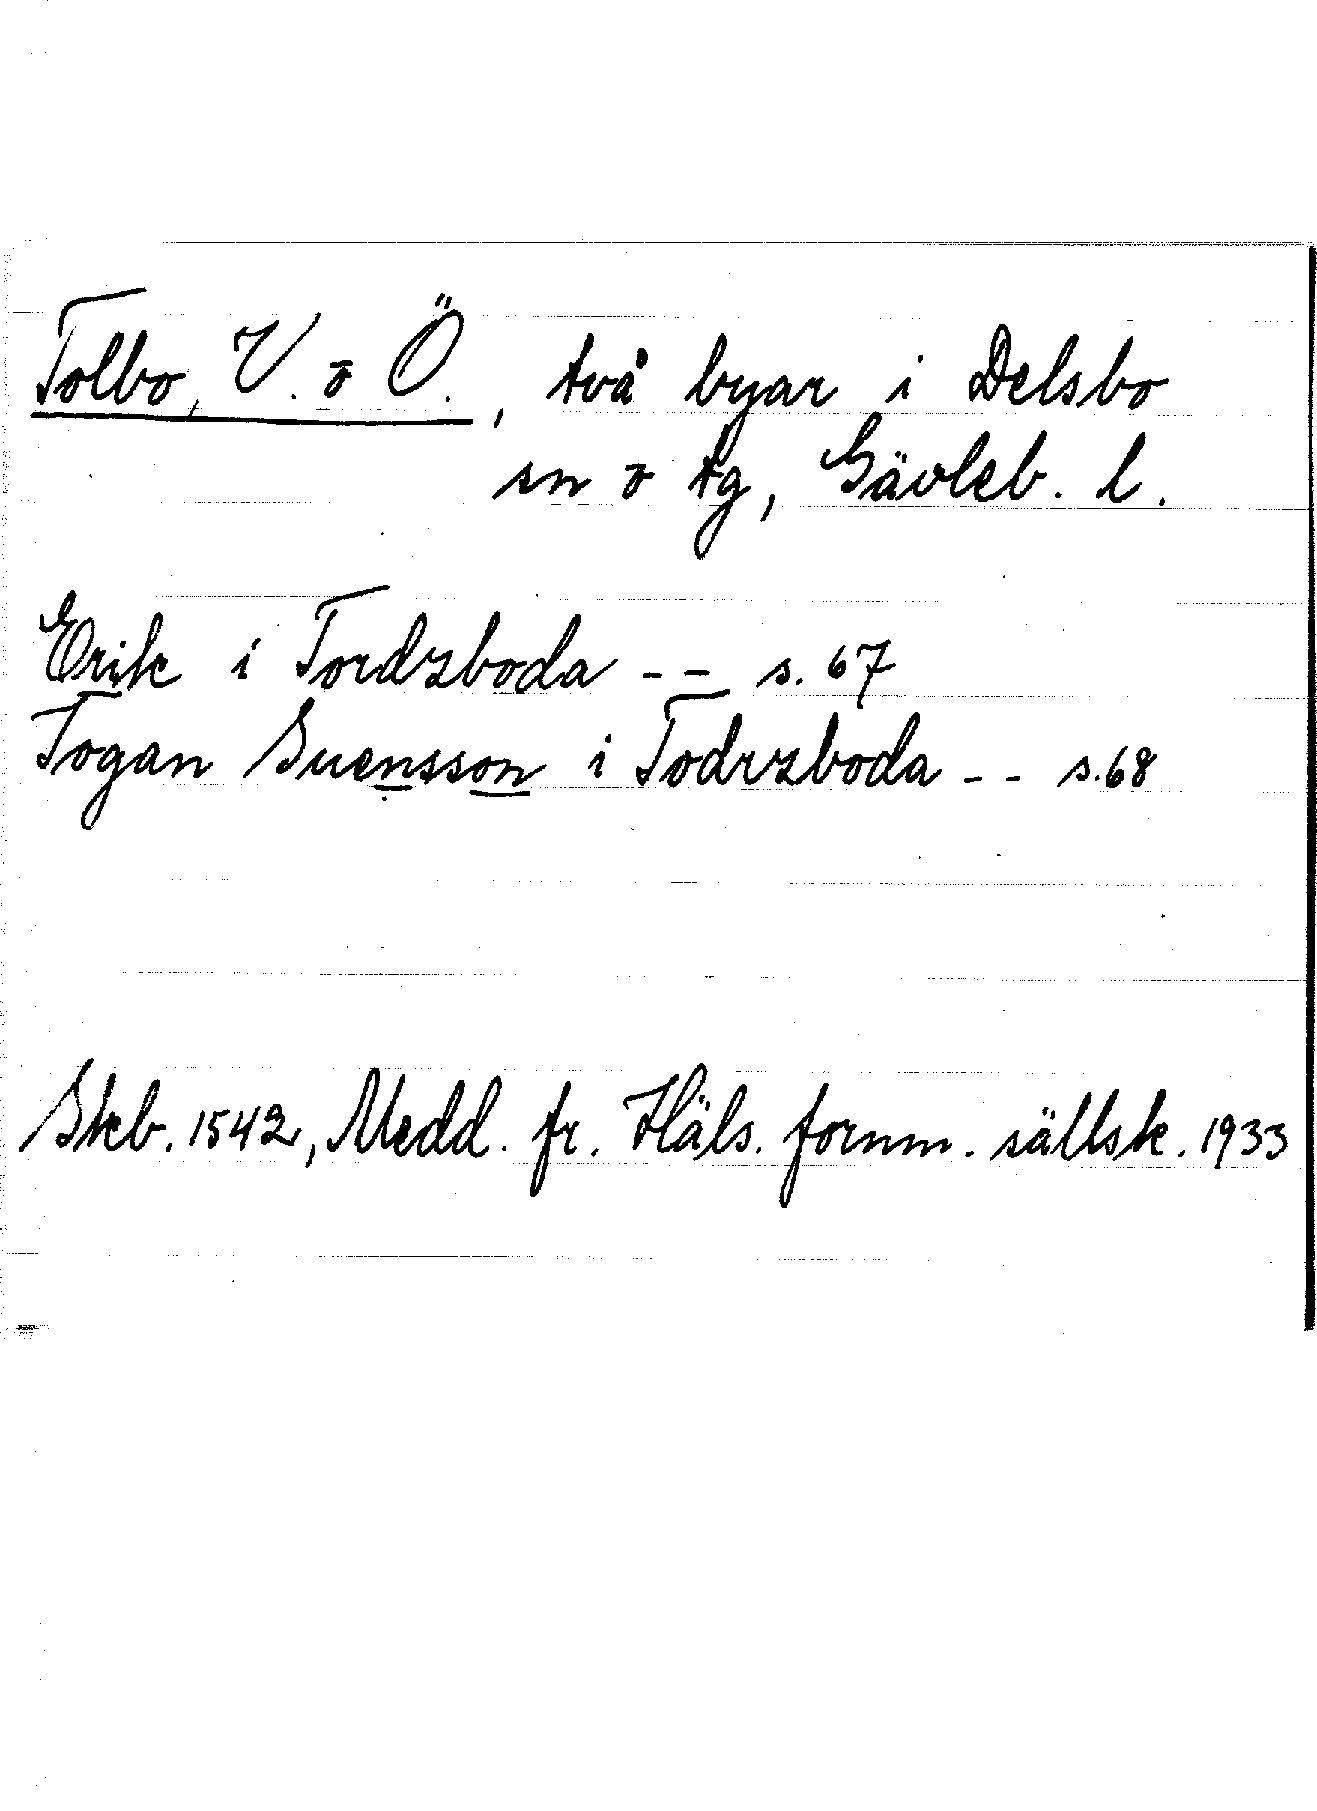 Tolbo, V. o Ö., två byar i Delsbo
sn o tg, Gävleb. l.
Erik i Tordzboda -- s. 67
Togan Suensson i Todrzboda -- s.68
Skb. 1542, Medd. fr. Häls. fornm. sällsk. 1933